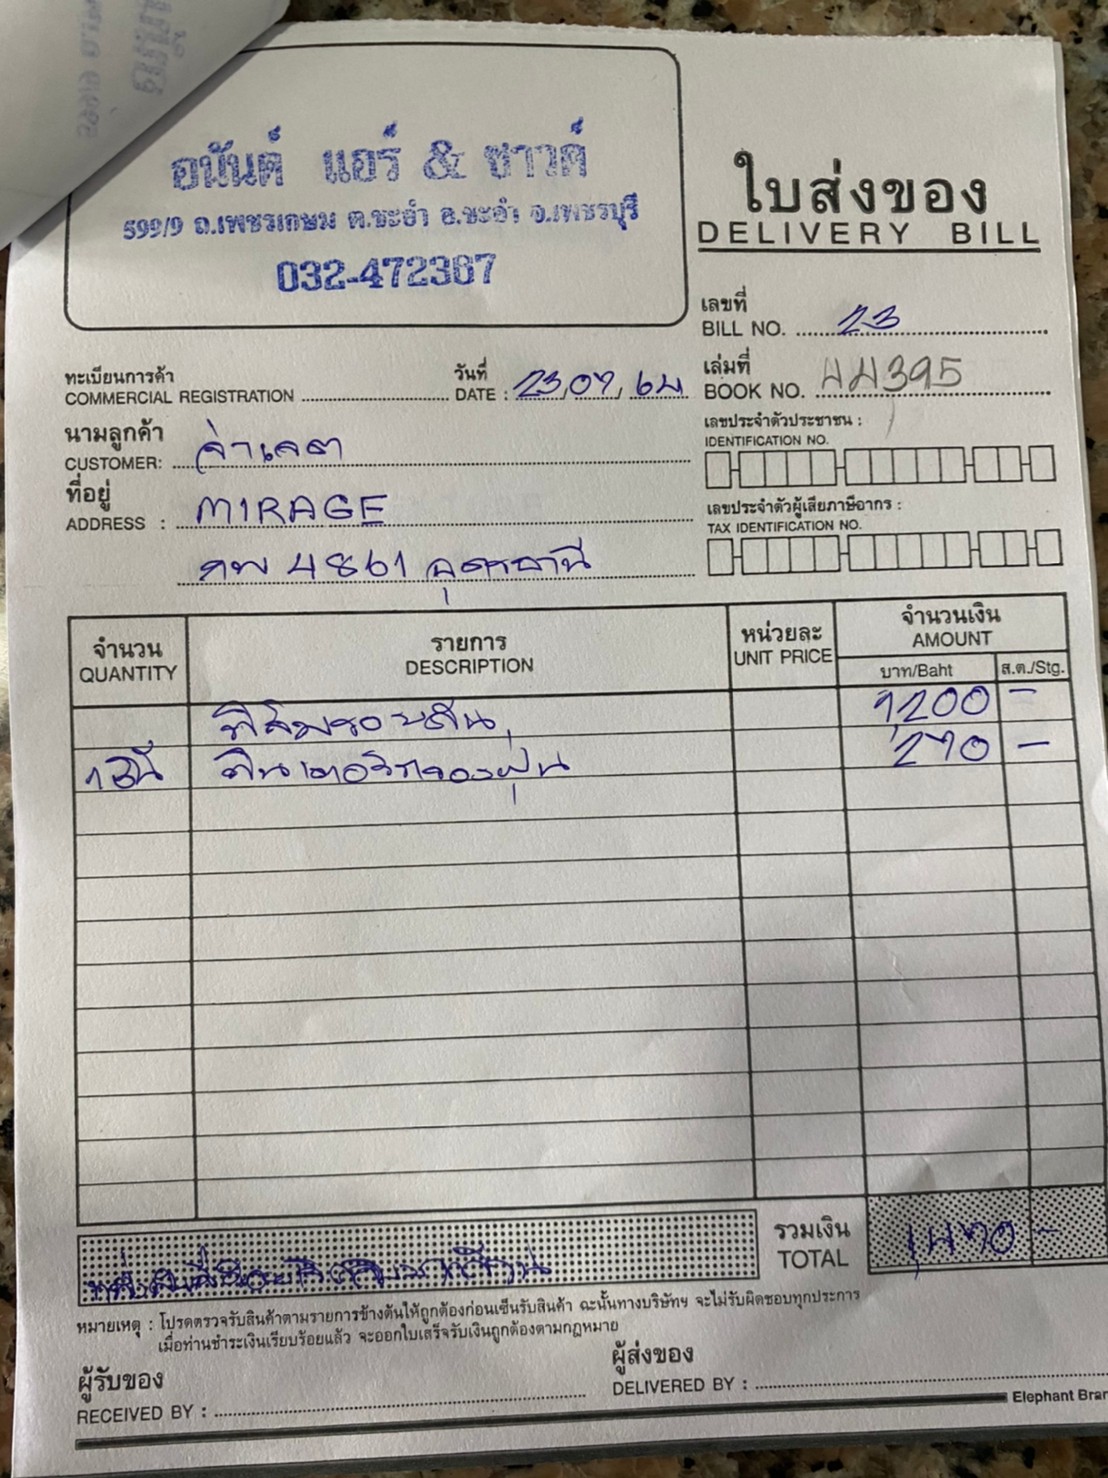 อนันต์ แอร์ & ซาวด์
599/9 ถ.เพชรเกษม ต.ชะอำ อ.ชะอำ จ.เพชรบุรี
032-472367
ใบส่งของ
DELIVERY BILL
เลขที่
BILL NO. 23
ทะเบียนการค้า
COMMERCIAL REGISTRATION
วันที่
DATE : 23,07,64
เล่มที่
BOOK NO. 44395
นามลูกค้า
CUSTOMER: จ่าเจต
เลขประจำตัวประชาชน :
IDENTIFICATION NO.
ที่อยู่
ADDRESS : MIRAGE
เลขประจำตัวผู้เสียภาษีอากร :
TAX IDENTIFICATION NO.
4861 อุดรธานี
จำนวน
QUANTITY
รายการ
DESCRIPTION
หน่วยละ
UNIT PRICE
จำนวนเงิน
AMOUNT
บาท/Baht
ส.ต./Stg.
ฟิล์มรอบคัน 1,200 -
270 -
รวมเงิน
TOTAL 1,470 -
หมายเหตุ : โปรดตรวจรับสินค้าตามรายการข้างต้นให้ถูกต้องก่อนเซ็นรับสินค้า ฉะนั้นทางบริษัทฯ จะไม่รับผิดชอบทุกประการ
เมื่อท่านชำระเงินเรียบร้อยแล้ว จะออกใบเสร็จรับเงินถูกต้องตามกฎหมาย
ผู้รับของ
RECEIVED BY :
ผู้ส่งของ
DELIVERED BY :
Elephant Bran